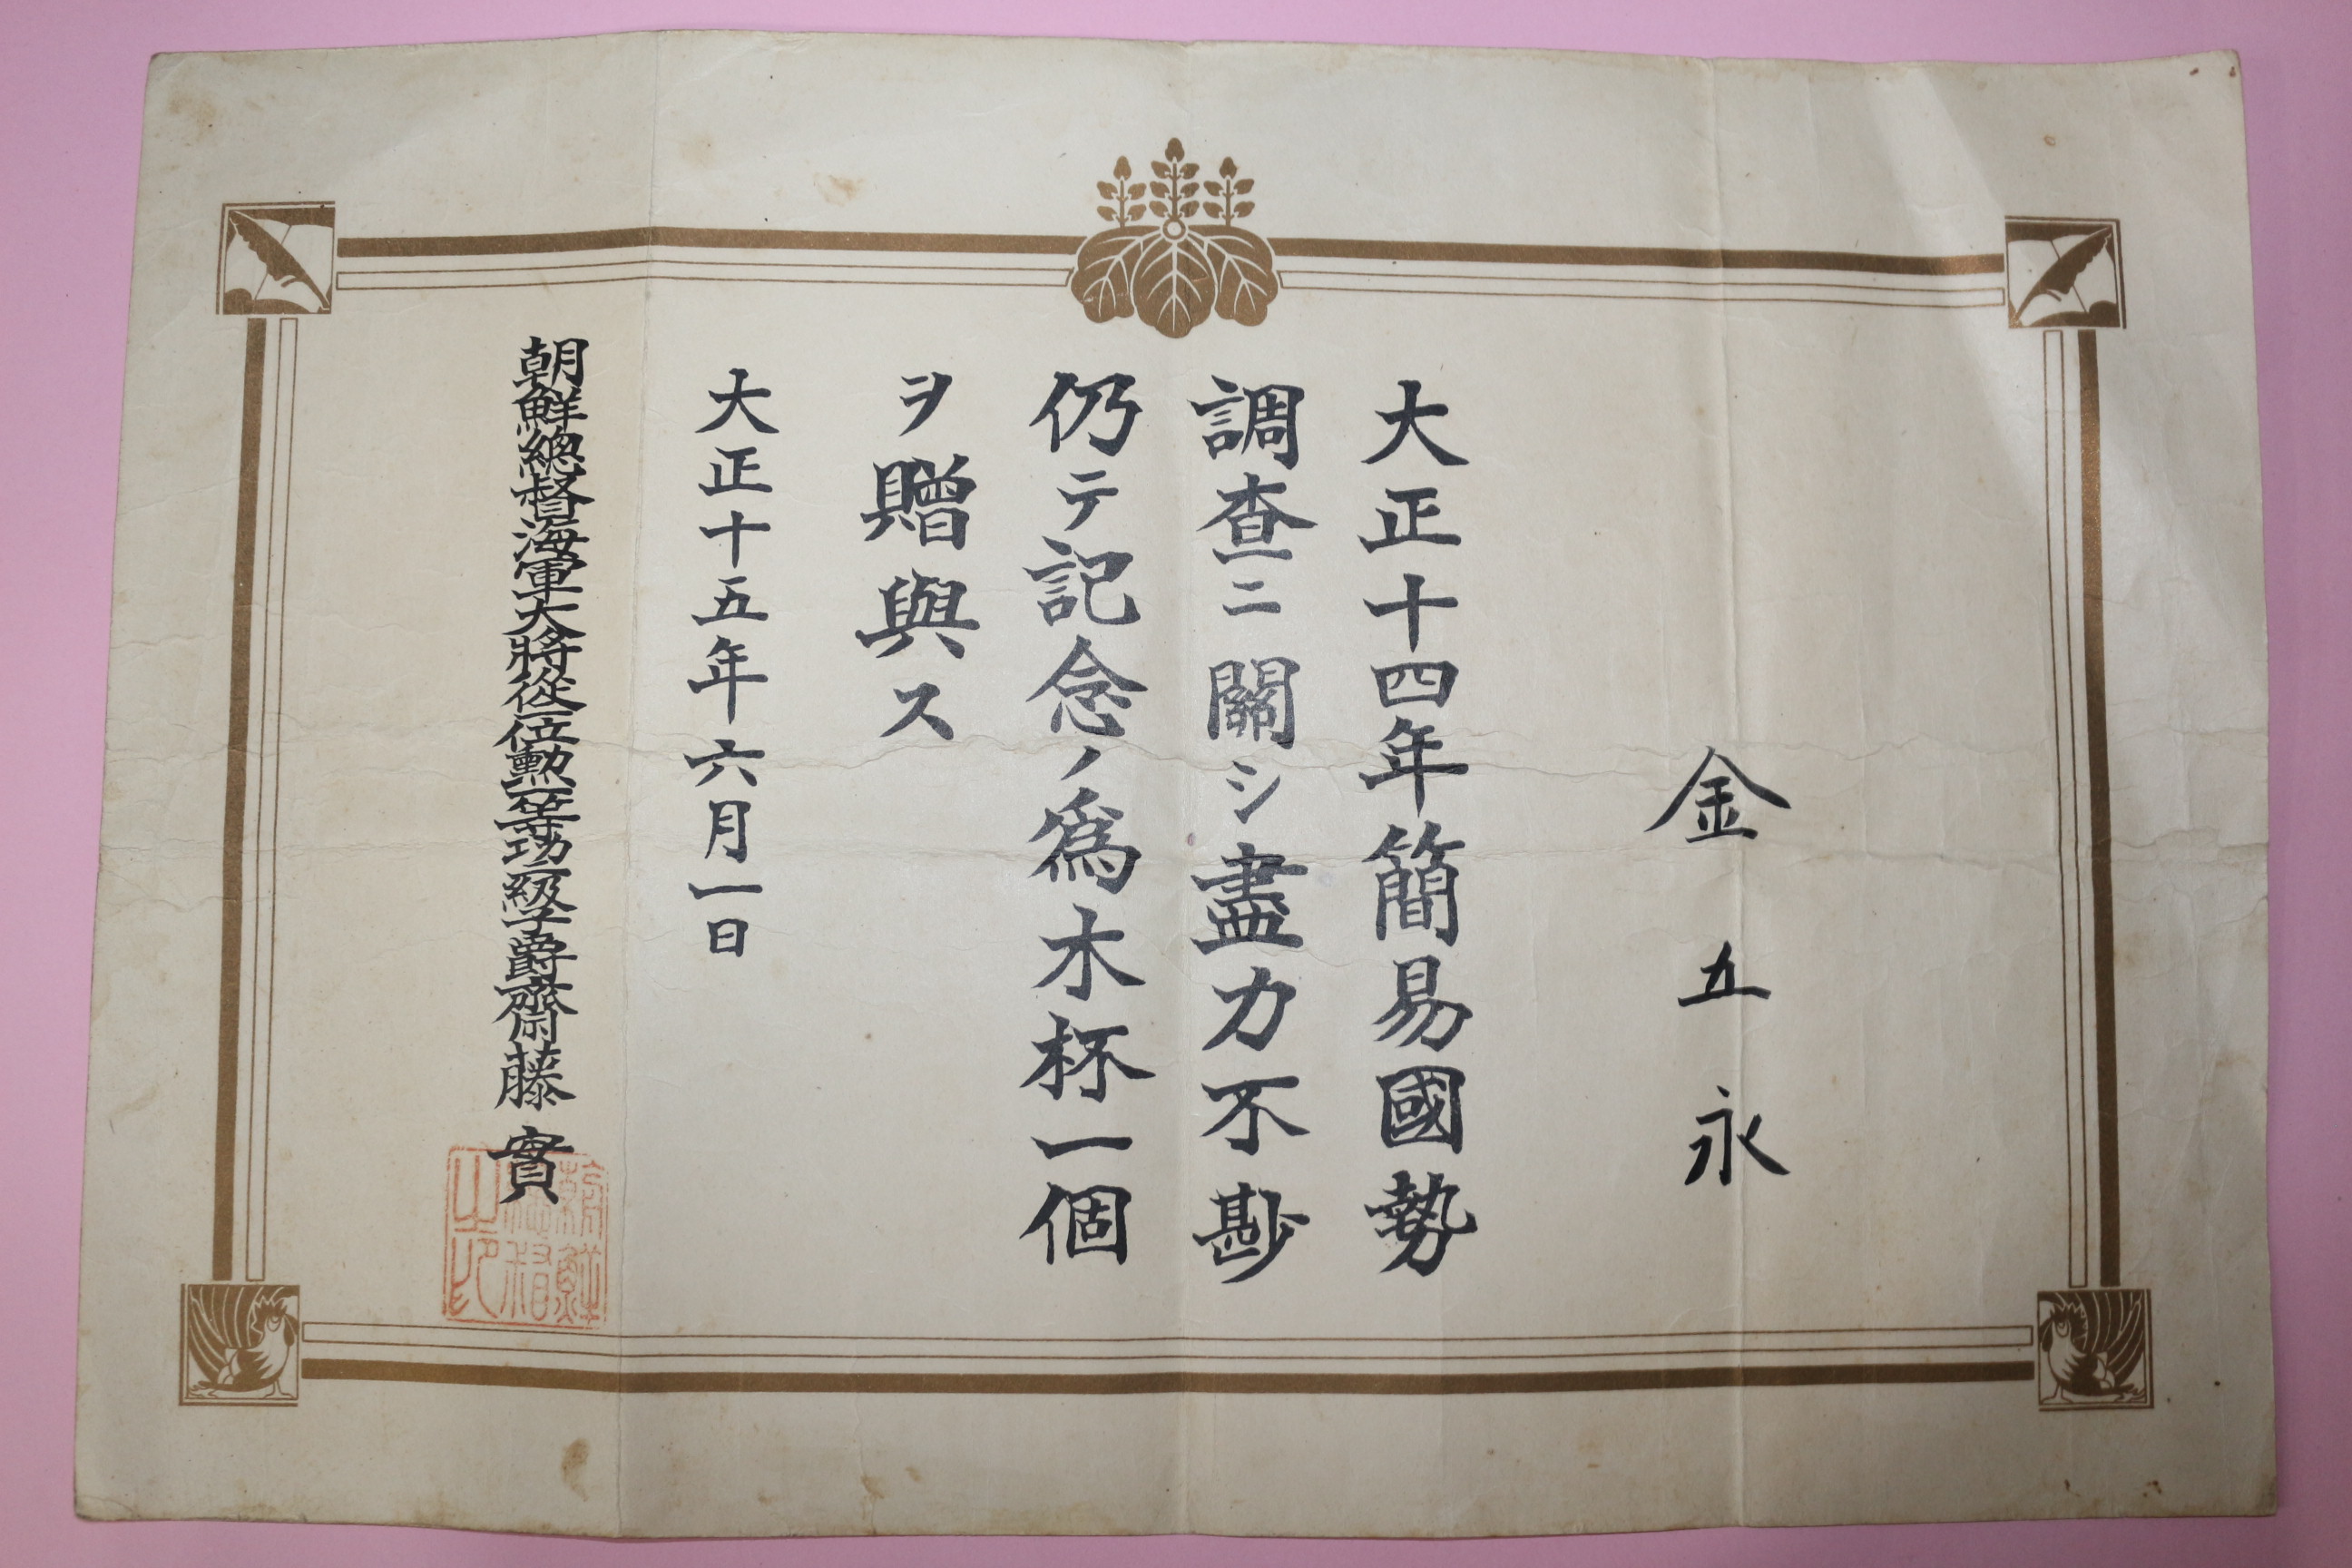 金五永
大正十四年簡易國勢
調查ニ關シ盡力不尠
仍テ記念ノ爲木杯一個
ヲ贈與ス
大正十五年六月一日
朝鮮總督海軍大將從一位勳一等功二級子爵齋藤實
朝鮮總督之印